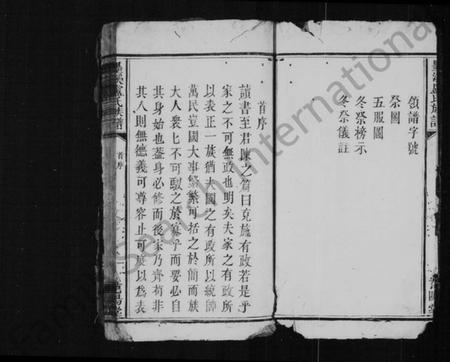 領譜字號
祭圖
五服圖
冬祭榜示
冬祭儀註
首序
讀書至君陳之篇曰克施有政若是乎
家之不可無政也明矣夫家之有政所
以表正一族猶夫國之有政所以統馭
萬民豈國大事繁可括之於簡而族
大人衆匕不可馭之於寡乎而要必自
其身始也蓋身必修而後家乃齊苟非
其人則無德義可尊容止可度以為表
首序